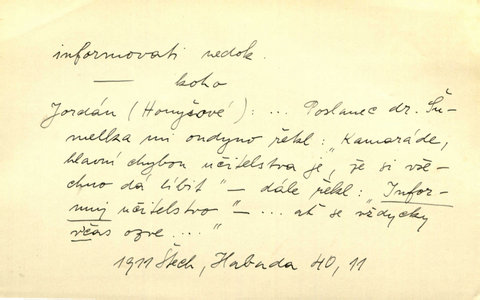 informovati nedok.
— koho
Jordán (Honyšové): ... Poslanec dr. Šu-
mellka mi ondyno řekl: „Kamaráde,
hlavní chybou učitelstva je, že si vše-
chno dá líbit" — dále řekl: „Infor-
muj učitelstvo" — ... ať se „vždycky
včas ozve ...."
1911 Štech, Habada 40, 11